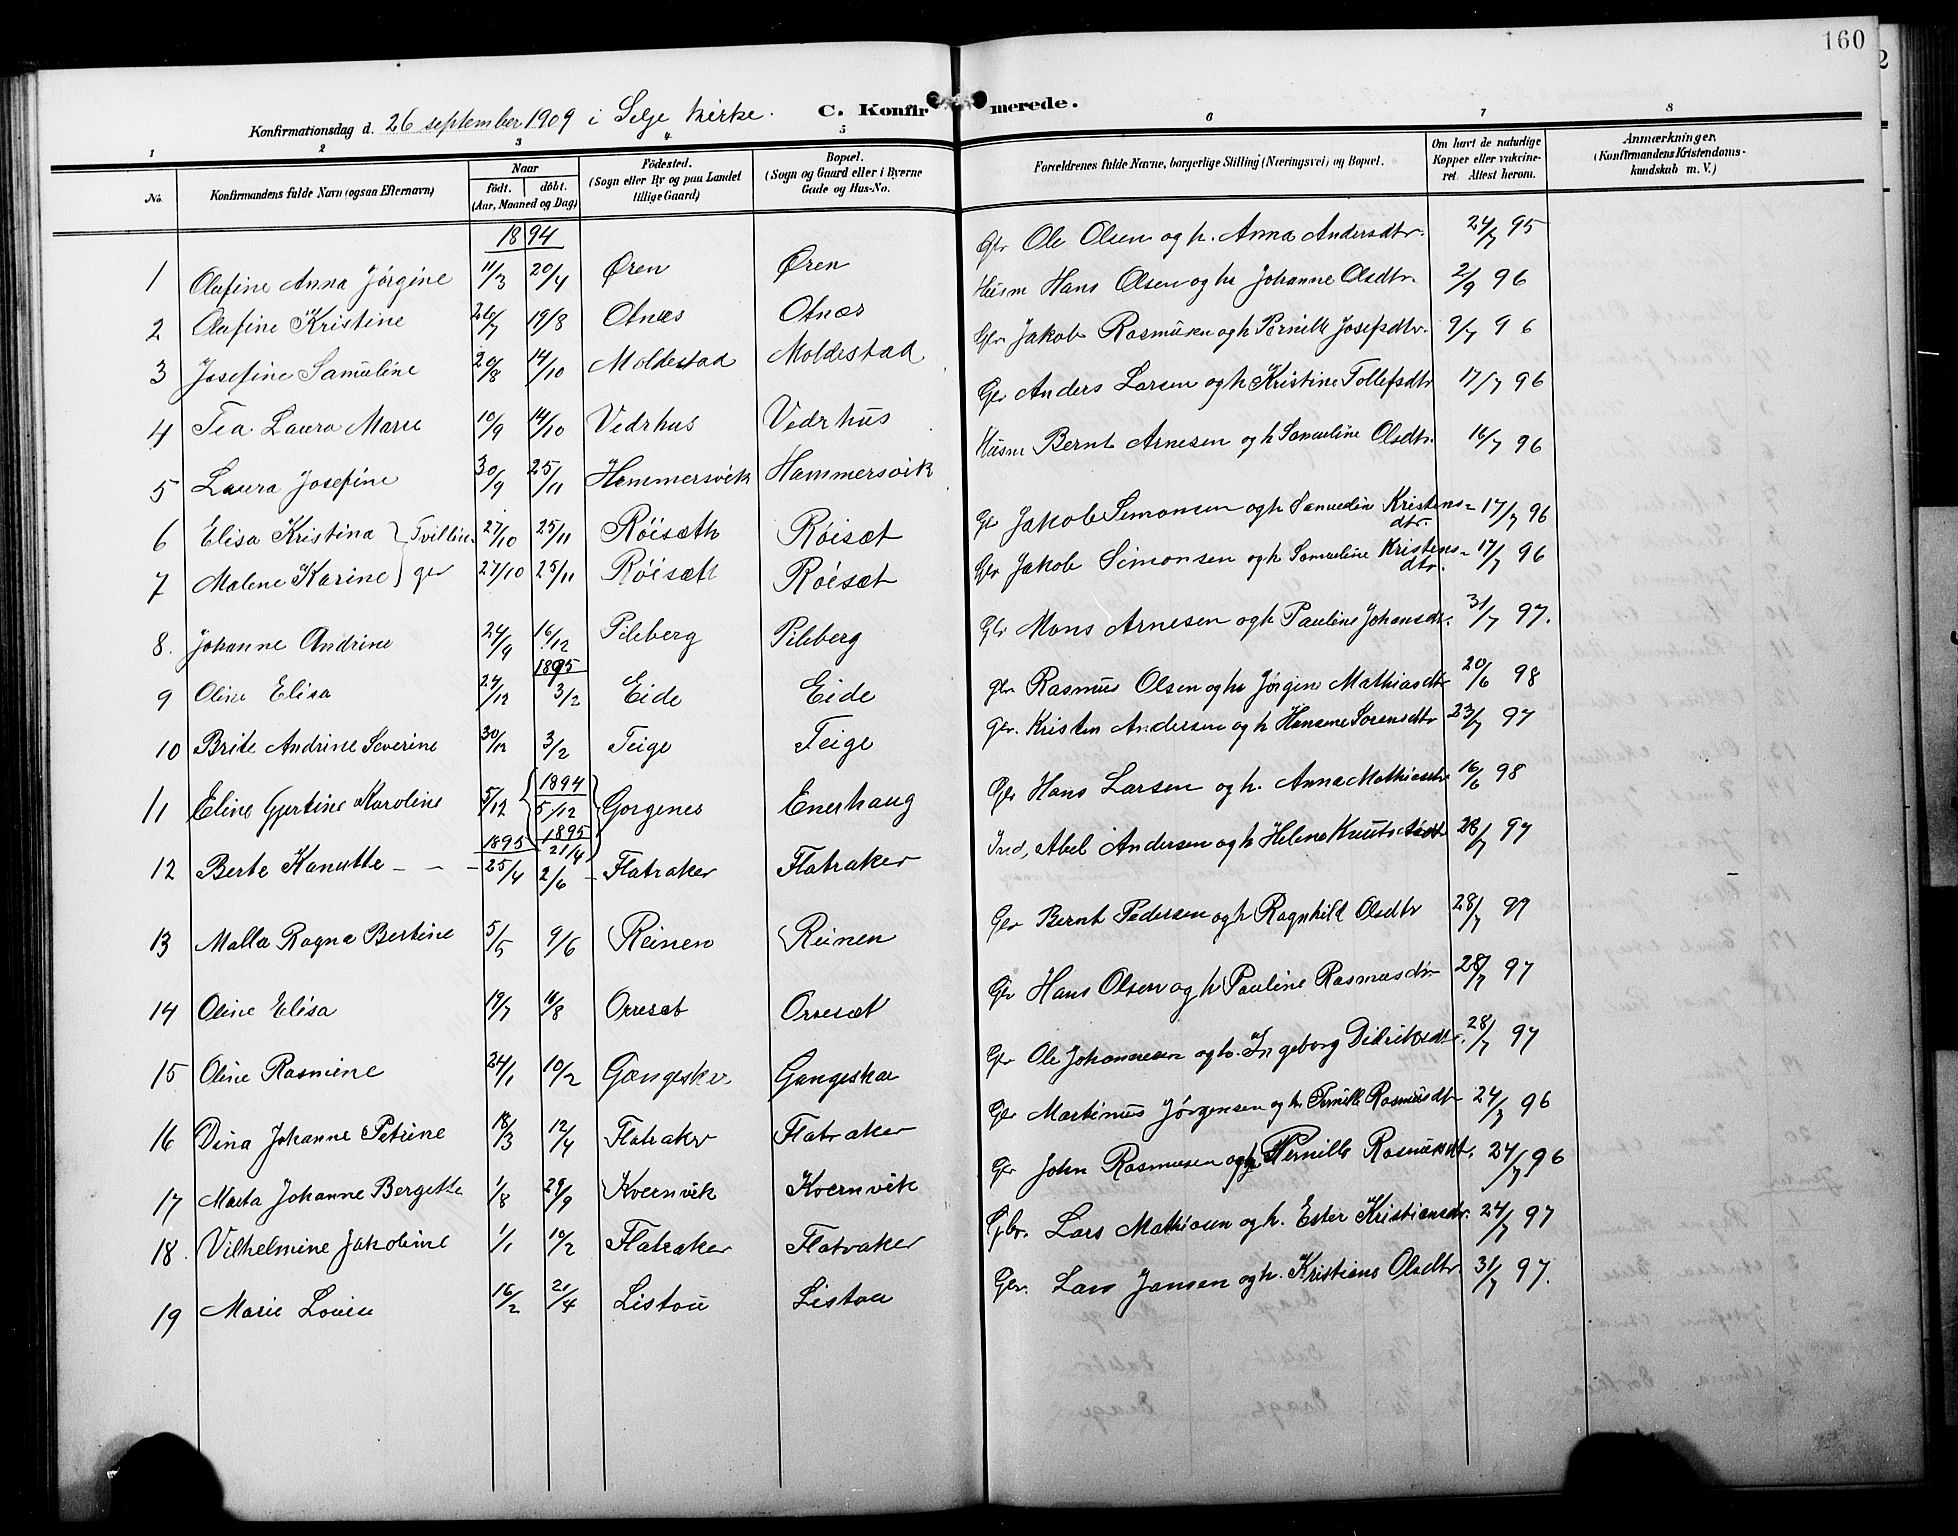 160
Konfirmationsdag d. 26 september 1909 i Selje kirke. C. Konfirmerede.
1 2 3 4 5 6 7 8
No. Konfirmandens fulde Navn (ogsaa Efternavn) Naar født. døbt. (Aar, Maaned og Dag) Fødested. (Sogn eller By og paa Landet tillige Gaard) Bopæl. (Sogn og Gaard eller i Byerne Gade og Hus-No. Forældrenes fulde Navne, borgerlige Stilling (Næringsvei) og Bopæl. Om havt de naturlige Kopper eller vakcineret. Attest herom. Anmærkninger. (Konfirmandens Kristendomskundskab m. V.)
1894
1 Olafine Anna Jørgine 11/3 20/4 Øren Øren Gbr Ole Olsen og h. Anna Andersdtr. 24/7 95
2 Olufine Kristine 26/7 19/8 Otnæs Otnæs Husm Hans Olsen og h Johanne Olsdtr. 2/9 96
3 Josefine Samuline 20/8 14/10 Moldestad Moldestad Gbr Jakob Rasmusen og h Pernille Josefsdtr. 9/7 96
4 Tea Laura Marie 10/9 14/10 Vedrhus Vedrhus Gbr Anders Larsen og h Kristine Tollefsdtr 17/7 96
5 Laura Josefine 30/9 25/11 Hammersvik Hammersvik Husm Bernt Arnesen og h Samueline Olsdtr. 16/7 96
6 Elisa Kristina } Tvillin- 27/10 25/11 Røisæth Røisæt Gbr Jakob Simonsen og h Samuelin Kristensdtr. 17/7 96
7 Malene Karine } ger 27/10 25/11 Røisætt Røisæt Gbr Jakob Simonsen og h Samueline Kristensdtr. 17/7 96
8. Johanne Andrine 24/9 16/12 Pileberg Pileberg Gbr Mons Arnesen og h Pauline Johansdtr. 31/7 97.
1895
9 Oline Elisa 24/12 3/2 Eide Eide Gbr Rasmus Olsen og h Jørgin Mathiasdtr 20/6 98
10 Brite Andrine Severine 30/12 3/2 Teige Teige Gbr. Kristen Andersen og h Hansine Sørensdtr 23/7 97
11 Eline Gjertine Karoline 5/12 { 1894 5/12 1895 21/4 } Gorgenes Enerhaug Gbr Hans Larsen og h. Anna Mathiasdtr 16/6 98
1895
12 Berte Kanutte - - - 25/4 2/6 - Flatraker Flatraker Ind, Abel Andersen og h Helene Knutsdtr 28/7 97
13 Malla Ragna Bertine 5/5 9/6 Reinen Reinen Gbr Bernt Pedersen og h Ragnhild Olsdtr 28/7 99
14 Oline Elisa 19/7 18/8 Orresæt Orresæt Gbr Hans Olsen og h Pauline Rasmusdtr 28/7 97
15 Oline Rasmine 24/1 10/2 Gangeskar Gangeskar Gbr Ole Johannesen og h. Ingeborg Didriksdtr. 28/7 97
16 Dina Johanne Petrine 18/3 12/4 Flatraker Flatraker Gbr Martinus Jørgensen og h. Pernille Rasmusdtr 24/7 96
17 Marta Johanne Bergette 1/8 29/9 Kvernvik Kvernvik Gbr John Rasmusen og h Pernille Rasmusdtr. 24/7 96
18. Vilhelmine Jakobine 1/1 10/2 Flatraker Flatraker Gbr. Lars Mathiasen og h. Ester Kristiansdtr. 24/7 97
19 Marie Lovise 16/2 21/4 Listou Listou Gbr. Lars Jansen og h. Kristiane Olsdtr. 31/7 97.